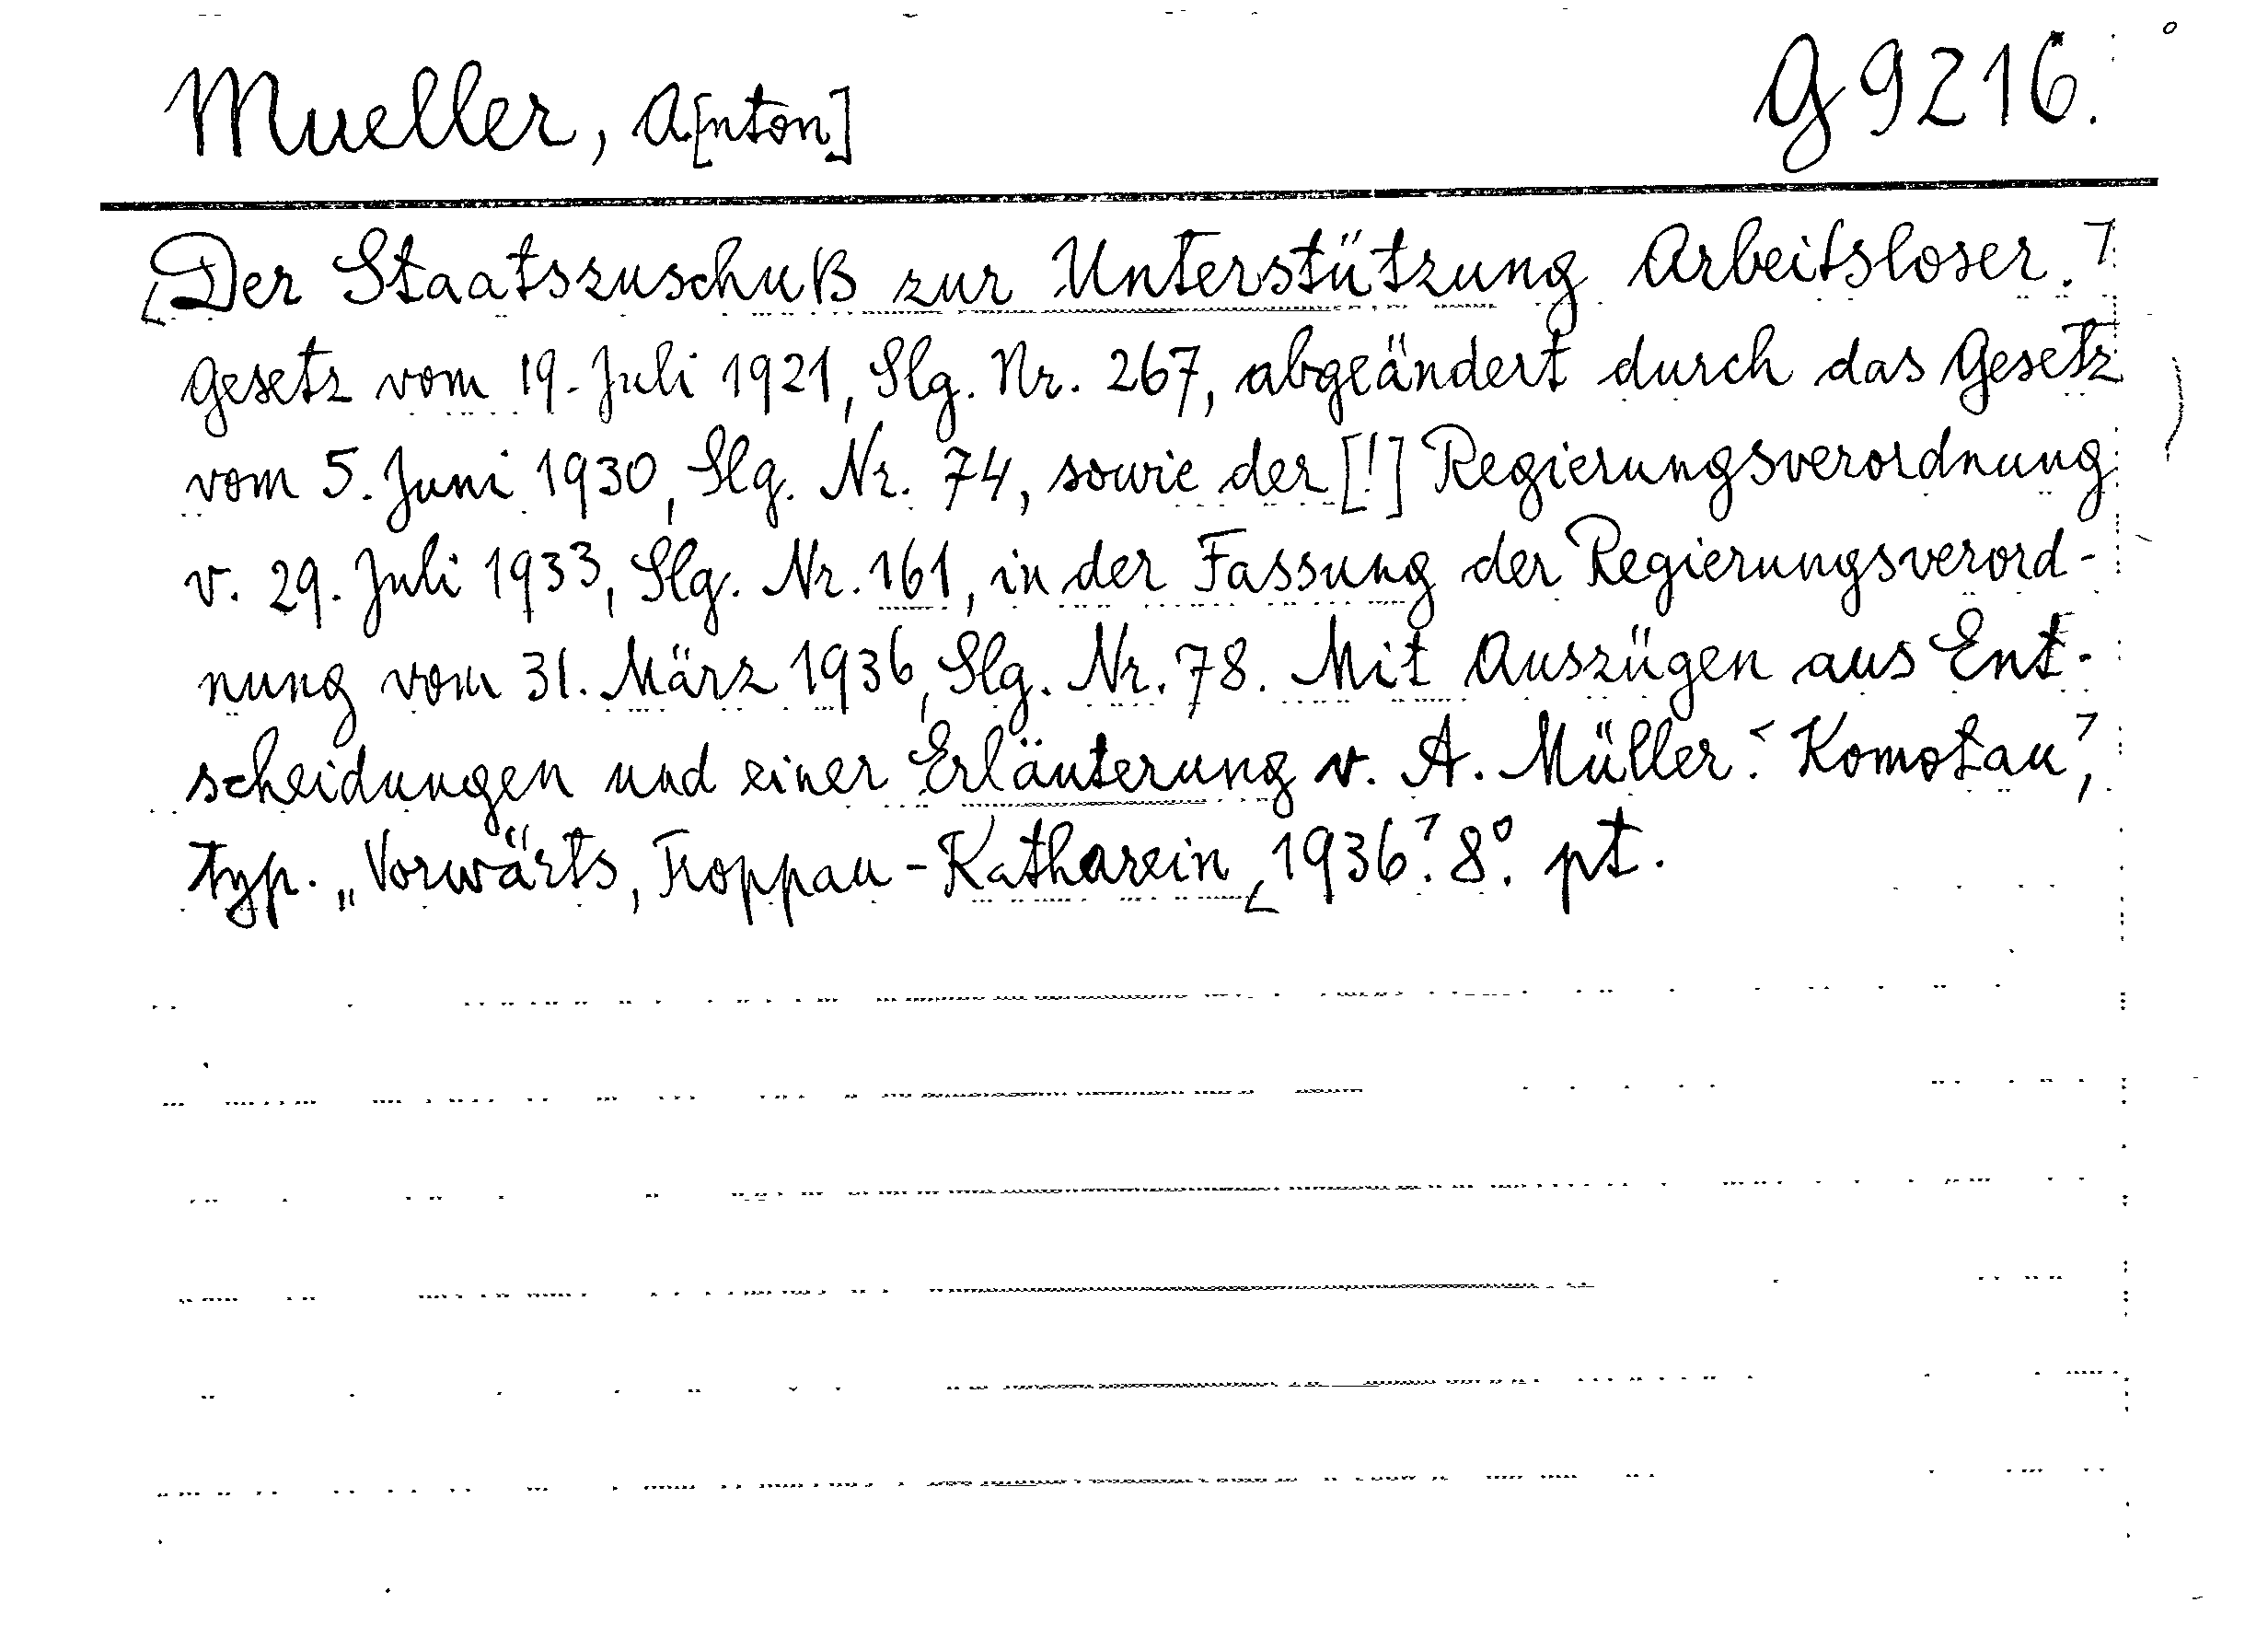 Mueller, A[nton]
G 9216.
Der Staatszuschuß zur Unterstützung Arbeitsloser.
Gesetz vom 19. Juli 1921, Slg. Nr. 267, abgeändert durch das Gesetz
vom 5. Juni 1930, Slg. Nr. 74, sowie der [!] Regierungsverordnung
v. 29. Juli 1933, Slg. Nr. 161, in der Fassung der Regierungsverord-
nung vom 31. März 1936, Slg. Nr. 78. Mit Auszügen aus Ent-
scheidungen und einer Erläuterung v. A. Müller. Komotau,
typ. „Vorwärts“, Troppau-Katharein, 1936. 8°. pt.